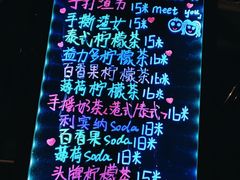 手打渣男 15米 meet you
手撕渣女 15米
泰式柠檬茶 15米
益力多柠檬茶 16米
百香果柠檬茶 16米
薄荷柠檬茶 16米
手摇奶茶(港式/泰式) 16米
利宾纳soda 18米
百香果soda 18米
薄荷soda 18米
头牌柠檬茶 15米